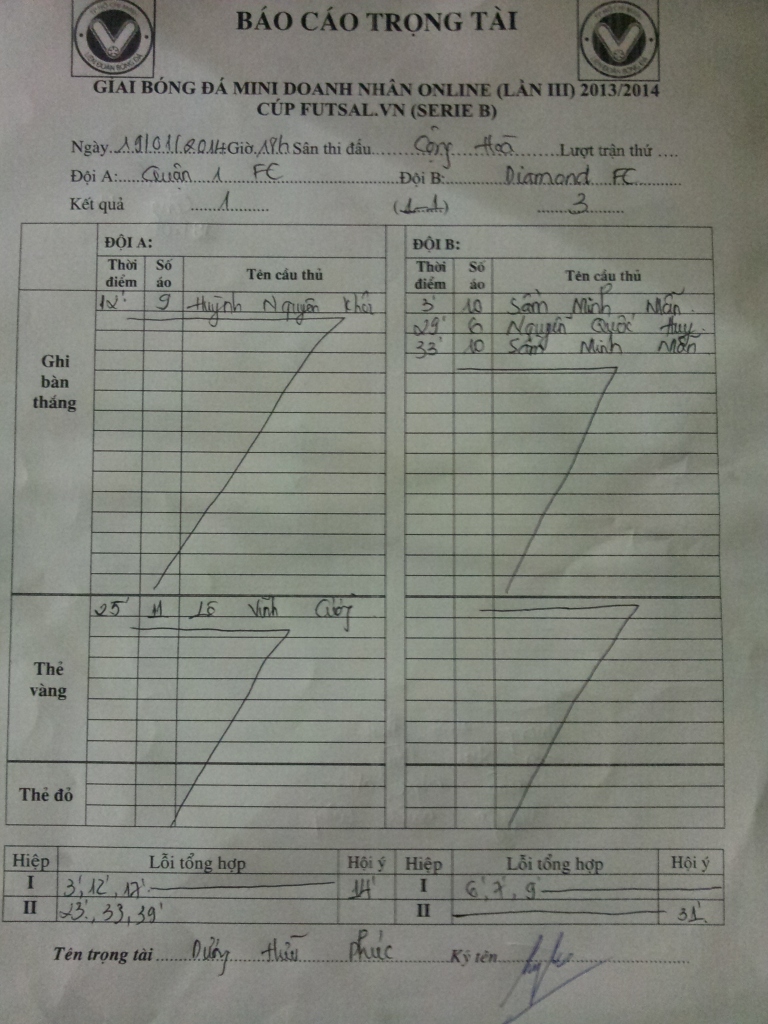 BÁO CÁO TRỌNG TÀI
GIẢI BÓNG ĐÁ MINI DOANH NHÂN ONLINE (LẦN III) 2013/2014
CÚP FUTSAL.VN (SERIE B)
Ngày 19/01/2014 Giờ 18h Sân thi đấu Cộng Hoà Lượt trận thứ ....
Đội A: Quận 1 FC Đội B: Diamond FC
Kết quả 1 (1-1) 3
ĐỘI A: ĐỘI B:
Thời điểm Số áo Tên cầu thủ Thời điểm Số áo Tên cầu thủ
Ghi bàn thắng
12' 9 Huỳnh Nguyên Khôi 3' 10 Sầm Minh Mẫn
29' 6 Nguyễn Quốc Huy
33' 10 Sầm Minh Mẫn
Thẻ vàng
25' 11 Lê Vĩnh Cường
Thẻ đỏ
Hiệp Lỗi tổng hợp Hội ý Hiệp Lỗi tổng hợp Hội ý
I 3', 12', 17' 14' I 6', 7', 9'
II 23', 33, 39' II 31'
Tên trọng tài Dương Phúc Ký tên